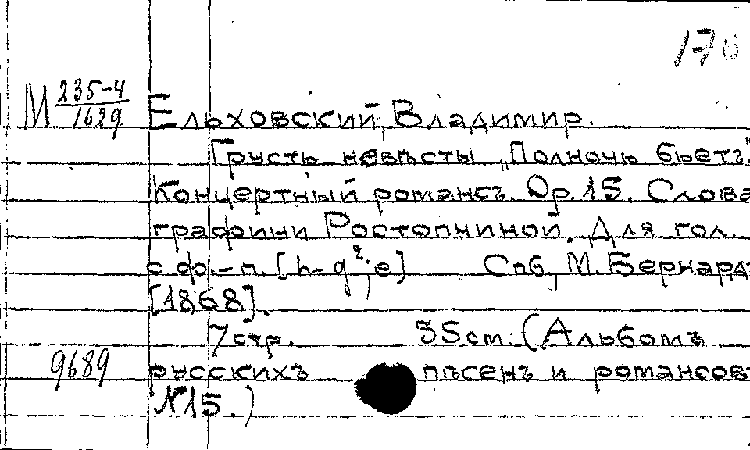 170
М 235-4/1629
Ельховский, Владимир.
Грусть невѣсты „Полночь бьетъ"
Концертный романсъ. Ор.15. Слова
графини Ростопчиной. Для гол.
с фо.-п. [h-g², e] Спб, М. Бернардъ
[1868].
7 стр. 35 cm. (Альбомъ
9689 русскихъ пѣсенъ и романсовъ
№15.)